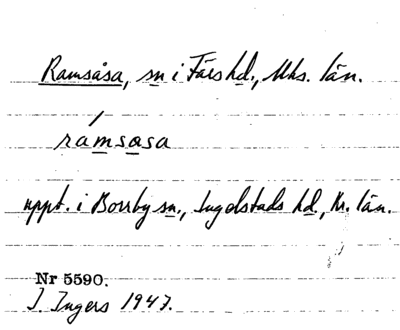 Ramsåsa, sn i Färs hd., Mhs. län.
rámsasa
uppt. i Borrby sn., Ingelstads hd., Kr. län.
Nr 5590.
I. Ingers 1947.